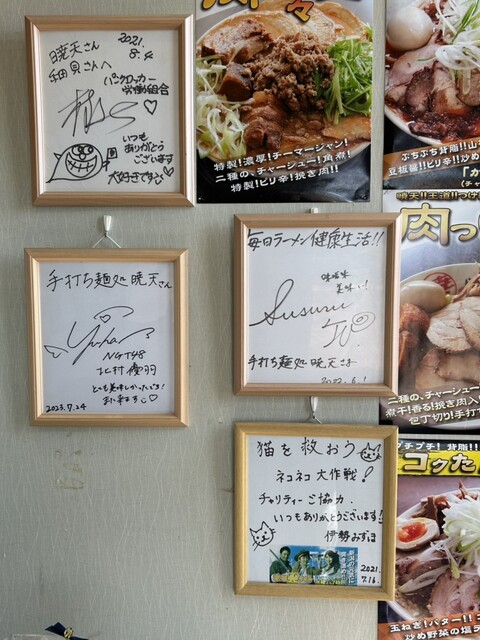 暁天さん
2021.
8.4
和員さんへ
パンクロッカー
労働組合
いつも
ありがとう
ございます
大好きです
特製!濃厚!チーマージャン!
二種の、チャーシュー!角煮!
特製!ピリ辛!挽き肉!!
手打ち麺処 暁天さん
Yuha
NGT48
北村優羽
とても美味しかったです!
また来ます
2023.7.24
毎日ラーメン健康生活!!
美味い!
Susuru
TV
手打ち麺処 暁天さま
2022.6.1
猫を救おう
ネコネコ大作戦!
チャリティーご協力
いつもありがとうございます!!
伊勢みずほ
2021.
7.16.
ぷちぷち背脂!!
豆板醤!!ピリ辛!!
暁天!!王道!!つけ
肉つ
二種の、チャーシュー
煮干!香る!挽き肉入
包丁切り!手打
プチプチ!背脂!!
コクた
玉ねぎ!バター!!
炒め野菜の塩ラ